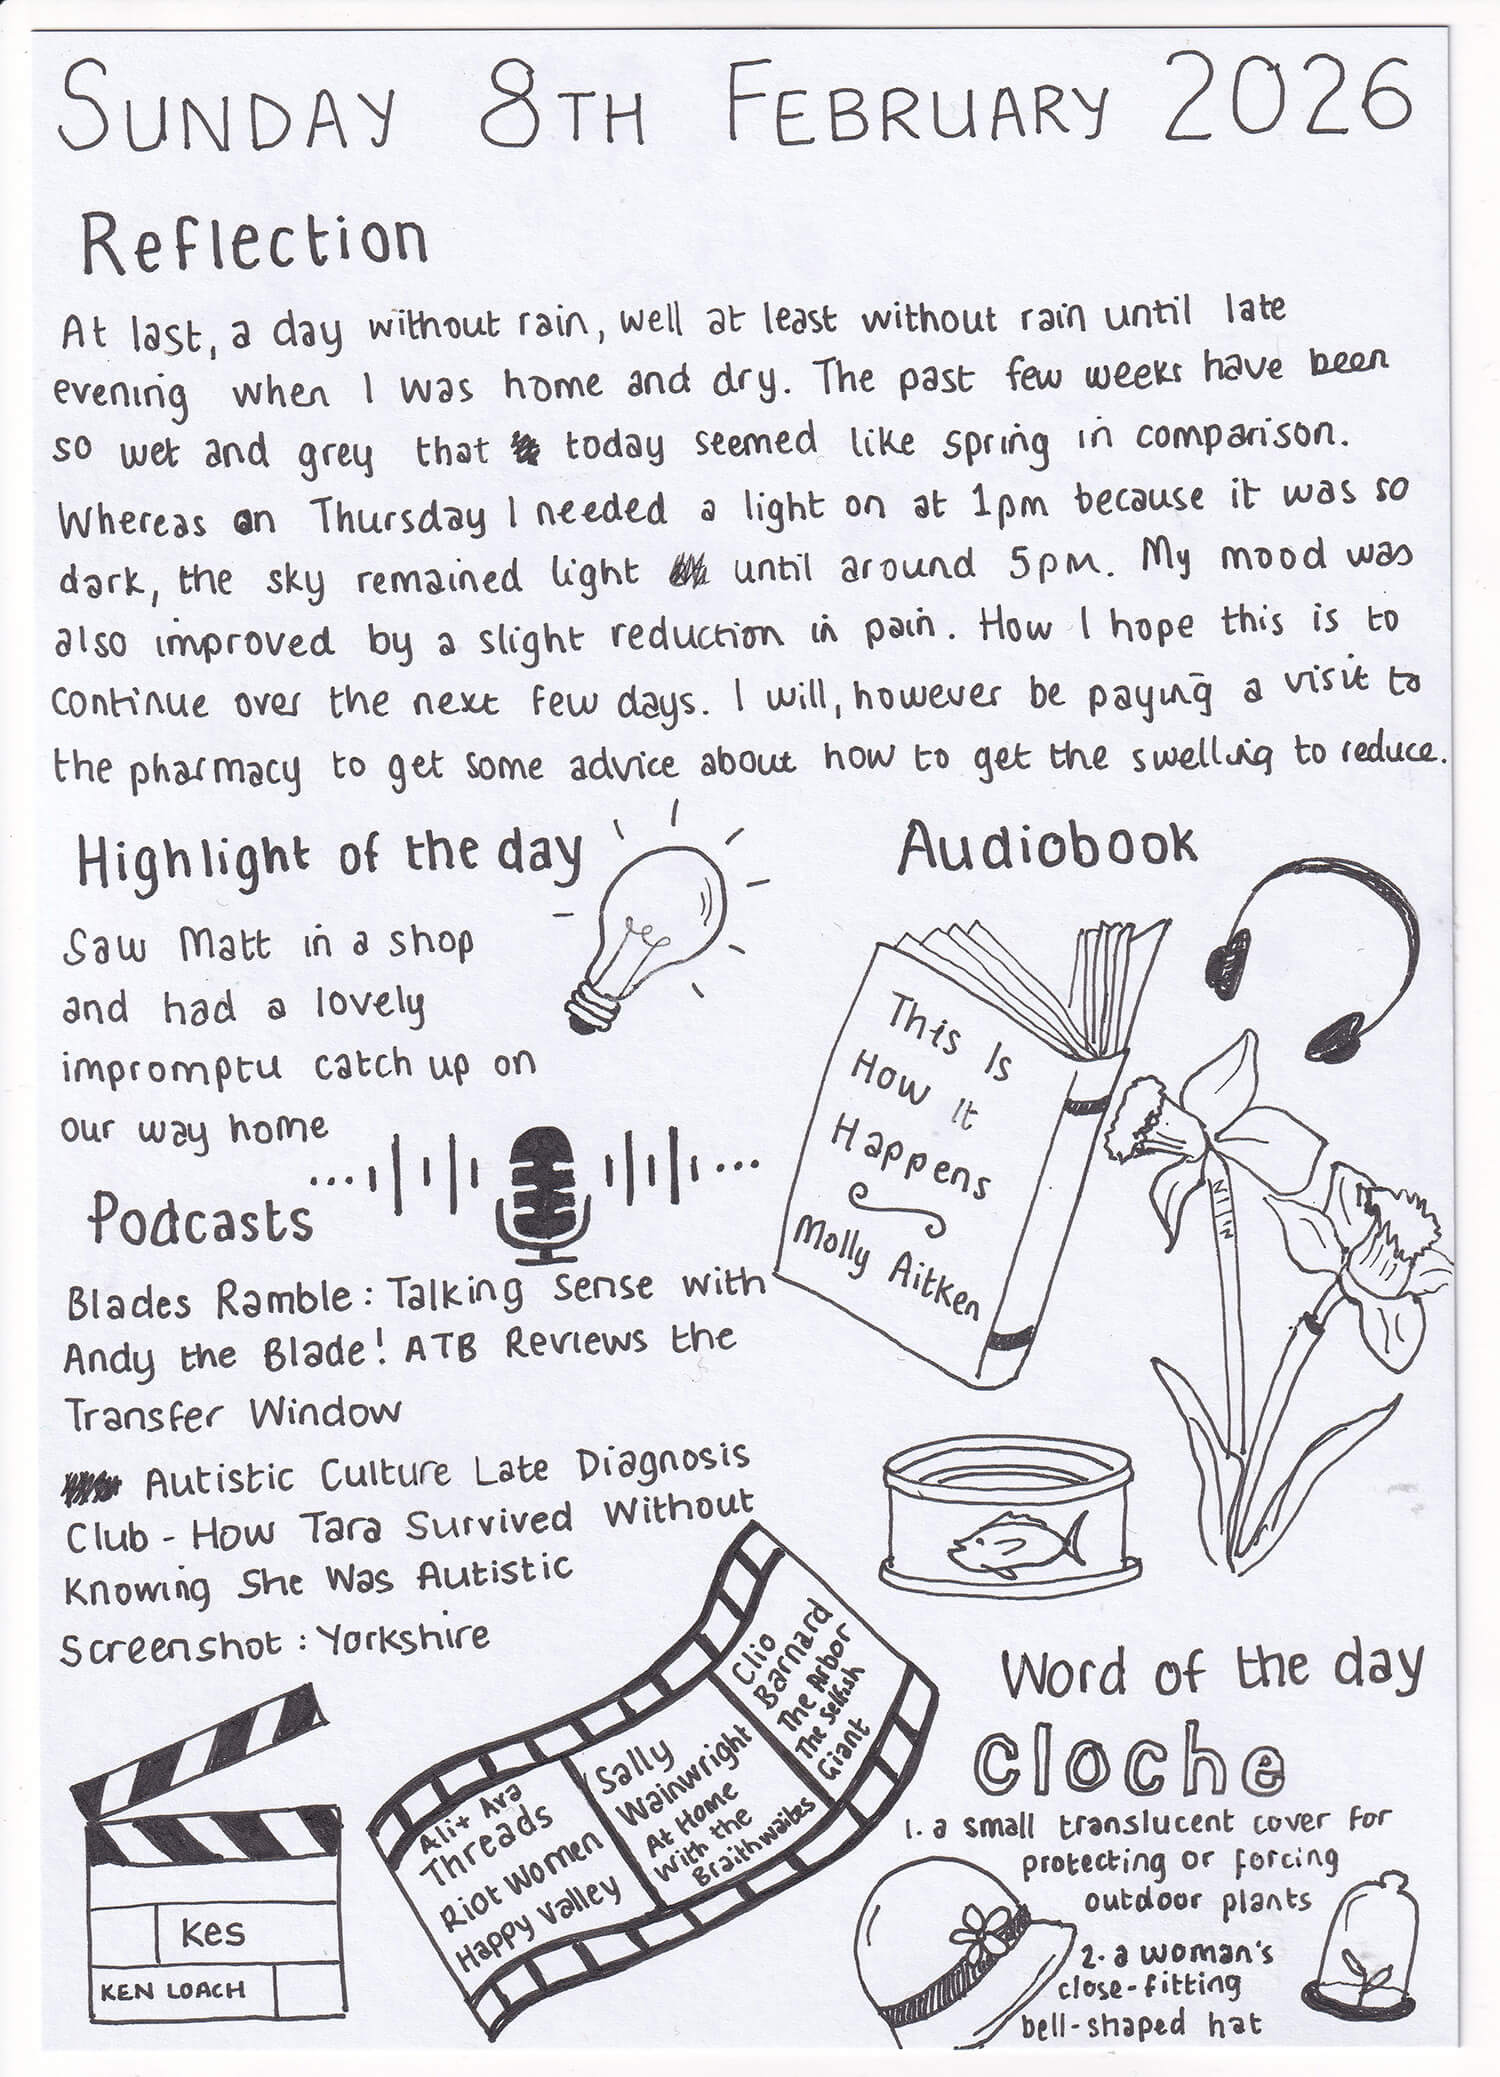 SUNDAY 8TH FEBRUARY 2026
Reflection
At last, a day without rain, well at least without rain until late
evening when I was home and dry. The past few weeks have been
so wet and grey that today seemed like spring in comparison.
Whereas on Thursday I needed a light on at 1pm because it was so
dark, the sky remained light until around 5pm. My mood was
also improved by a slight reduction in pain. How I hope this is to
continue over the next few days. I will, however be paying a visit to
the pharmacy to get some advice about how to get the swelling to reduce.
Highlight of the day
Saw Matt in a shop
and had a lovely
impromptu catch up on
our way home
Podcasts
Blades Ramble: Talking Sense with
Andy the Blade! ATB Reviews the
Transfer Window
Autistic Culture Late Diagnosis
Club - How Tara Survived Without
Knowing She Was Autistic
Screenshot: Yorkshire
Kes
KEN LOACH
Ali + Ava
Threads
Riot Women
Happy Valley
Sally
Wainwright
At Home
With the
Braithwaites
Clio
Barnard
The Arbor
The Selfish
Giant
Audiobook
This Is
How It
Happens
Molly Aitken
Word of the day
Cloche
1. a small translucent cover for
protecting or forcing
outdoor plants
2. a woman's
close-fitting
bell-shaped hat